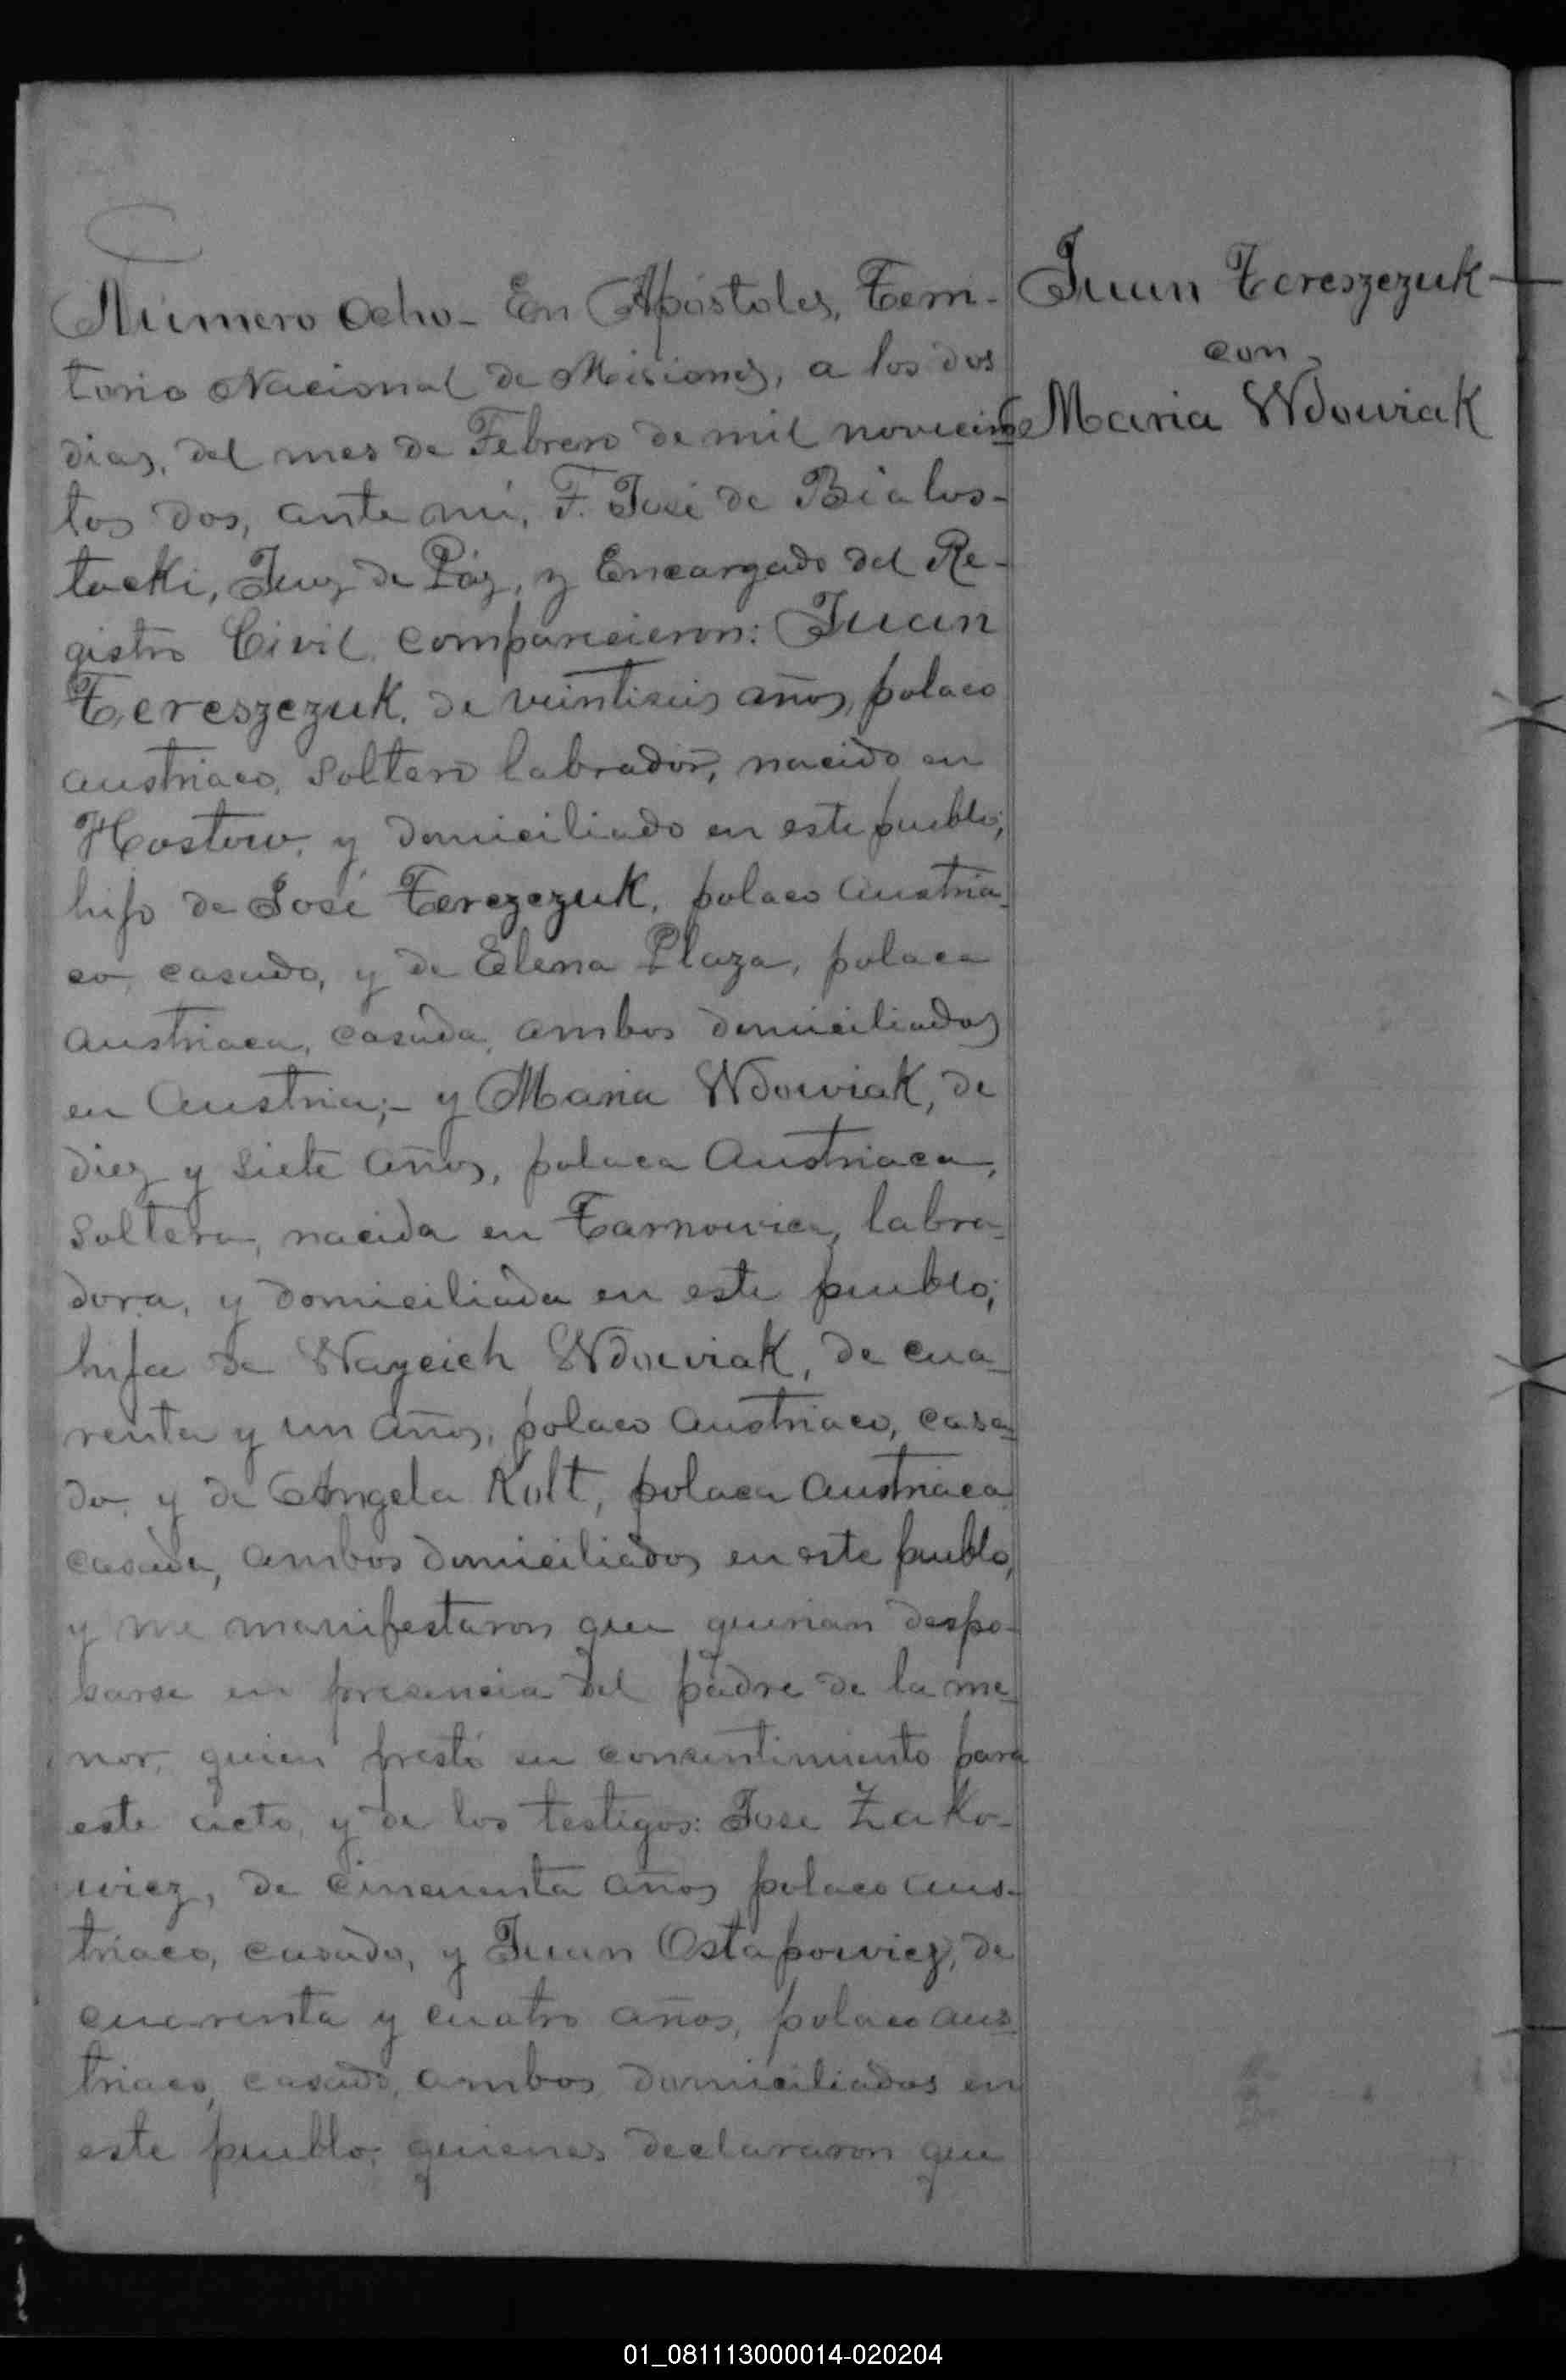 Juan Tereszezuk
con
Maria Wdowiak
Número Ocho- En Apóstoles, Terri-
torio Nacional de Misiones, a los dos
dias, del mes de Febrero de mil novecien
tos dos, ante mí, F. José de Bialos-
tocki, Juez de Páz, y Encargado del Re-
gistro Civil, comparecieron: Juan
Tereszezuk, de veintiseis años, polaco
austriaco, soltero labrador, nacido en
Hostow, y domiciliado en este pueblo;
hijo de José Terezezuk, polaco austria-
co, casado, y de Elena Plaza, polaca
austriaca, casada, ambos domiciliados
en Austria;- y Maria Wdowiak, de
diez y siete años, polaca austriaca,
soltera, nacida en Tarnowica, labra-
dora, y domiciliada en este pueblo;
hija de Wayeich Wdowiak, de cua-
renta y un años, polaco austriaco, casa-
do, y de Angela Kolt, polaca austriaca
casada, ambos domiciliados en este pueblo,
y me manifestaron que querian despo-
sarse en presencia del padre de la me-
nor, quien prestó su consentimiento para
este acto, y de los testigos: José Zako-
wicz, de cincuenta años polaco aus-
triaco, casado, y Juan Ostapowicz, de
cuarenta y cuatro años, polaco aus-
triaco, casado, ambos domiciliados en
este pueblo, quienes declararon que
01_081113000014-020204